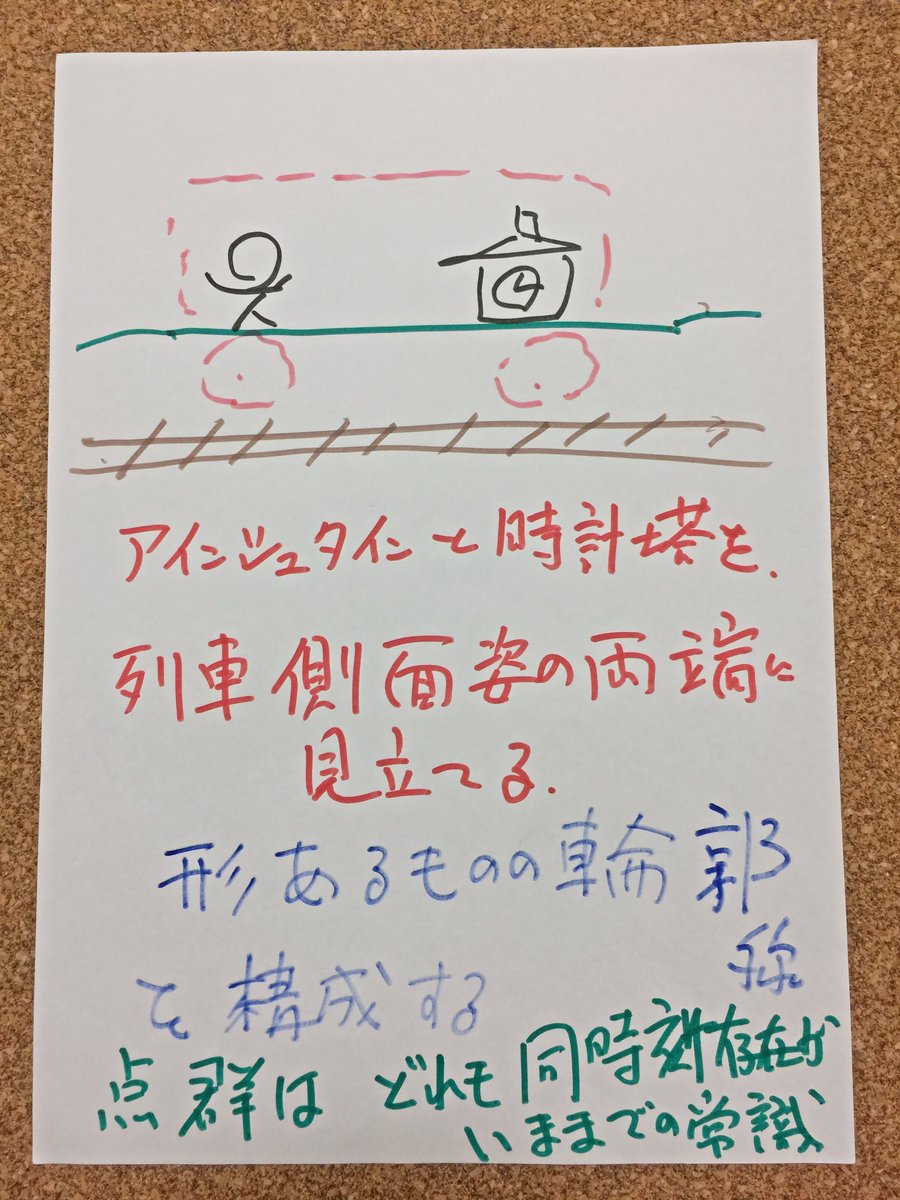 アインシュタインと時計塔を.
列車側面姿の両端に
見立てる.
形あるものの輪郭
を構成する
点群は どれも同時刻存在が
いままでの常識